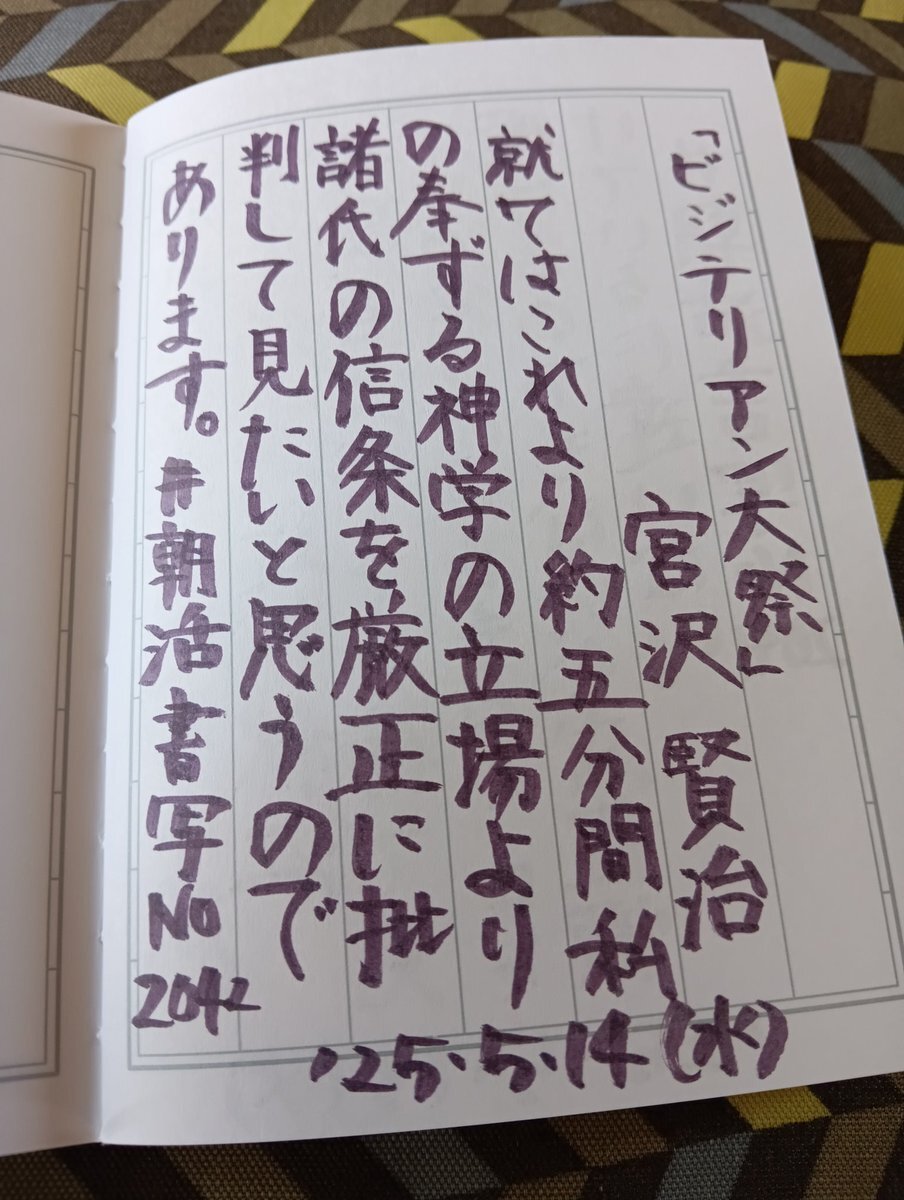 「ビジテリアン大祭」
宮沢 賢治
就てはこれより約五分間私
の奉ずる神学の立場より
諸氏の信条を厳正に批
判して見たいと思うので
あります。#朝活書写No
2042
'25.5.14(水)